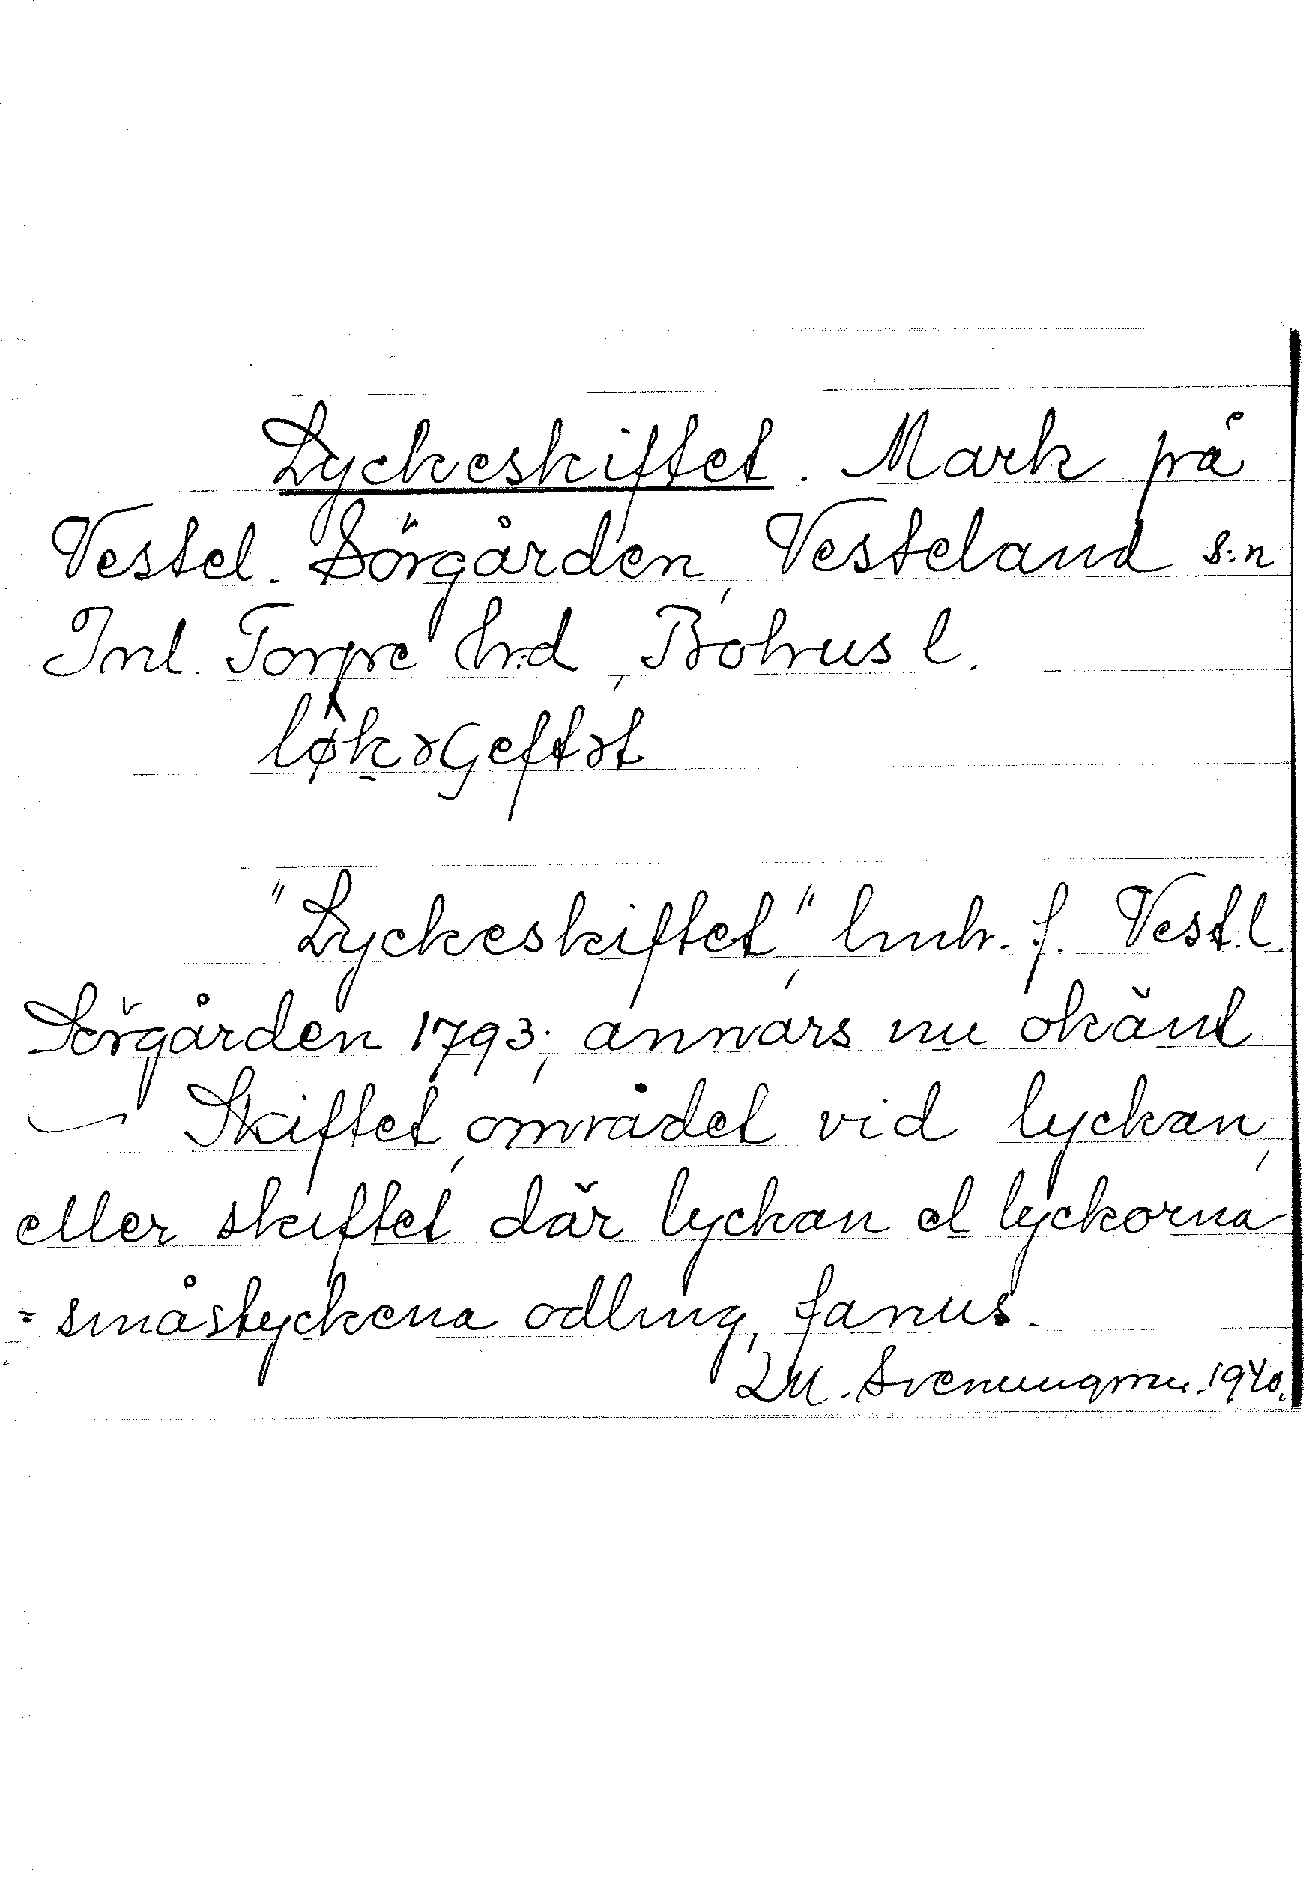 Lyckeskiftet. Mark på
Vestel. Sörgården, Vesteland s:n
Inl. Torpe hrd, Bohus l.
"Lyckeskiftet", lmh. f. Vest.l.
Sörgården 1793; annars nu okänt
— Skiftet, området vid lyckan,
eller skiftet där lyckan el lyckorna
= småstyckena odling, fanns.
LM. Svenungsson. 1940.